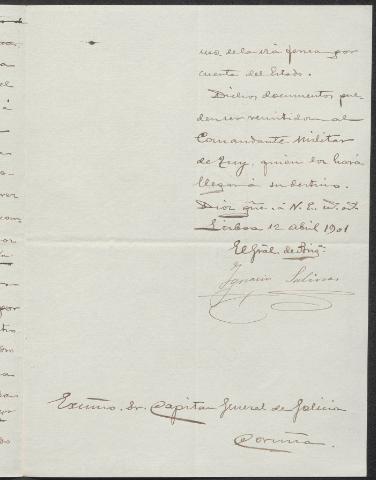 cuenta del Estado.
Dichos documentos pue-
den ser remitidos al
Comandante Militar
de Tuy, quien los hará
llegar á su destino.
Dios gūe. á V.E. m. a.
Lisboa 12 abril 1901
El Gral. de Brig.
Ignacio Salinas
Exmo. Sr. Capitan General de Galicia
Coruña.